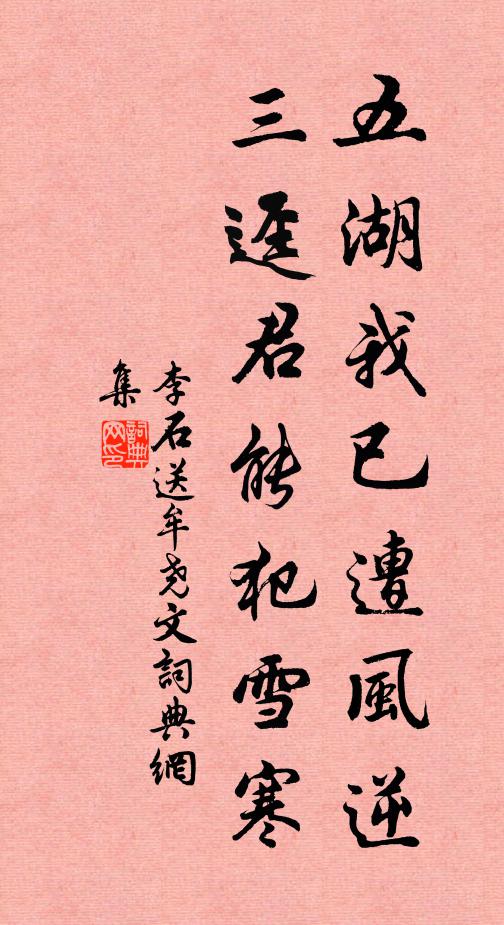 五湖我已遭風逆
三遲君能犯雪寒
李石送牟尧文詞典網
集
詞典網印